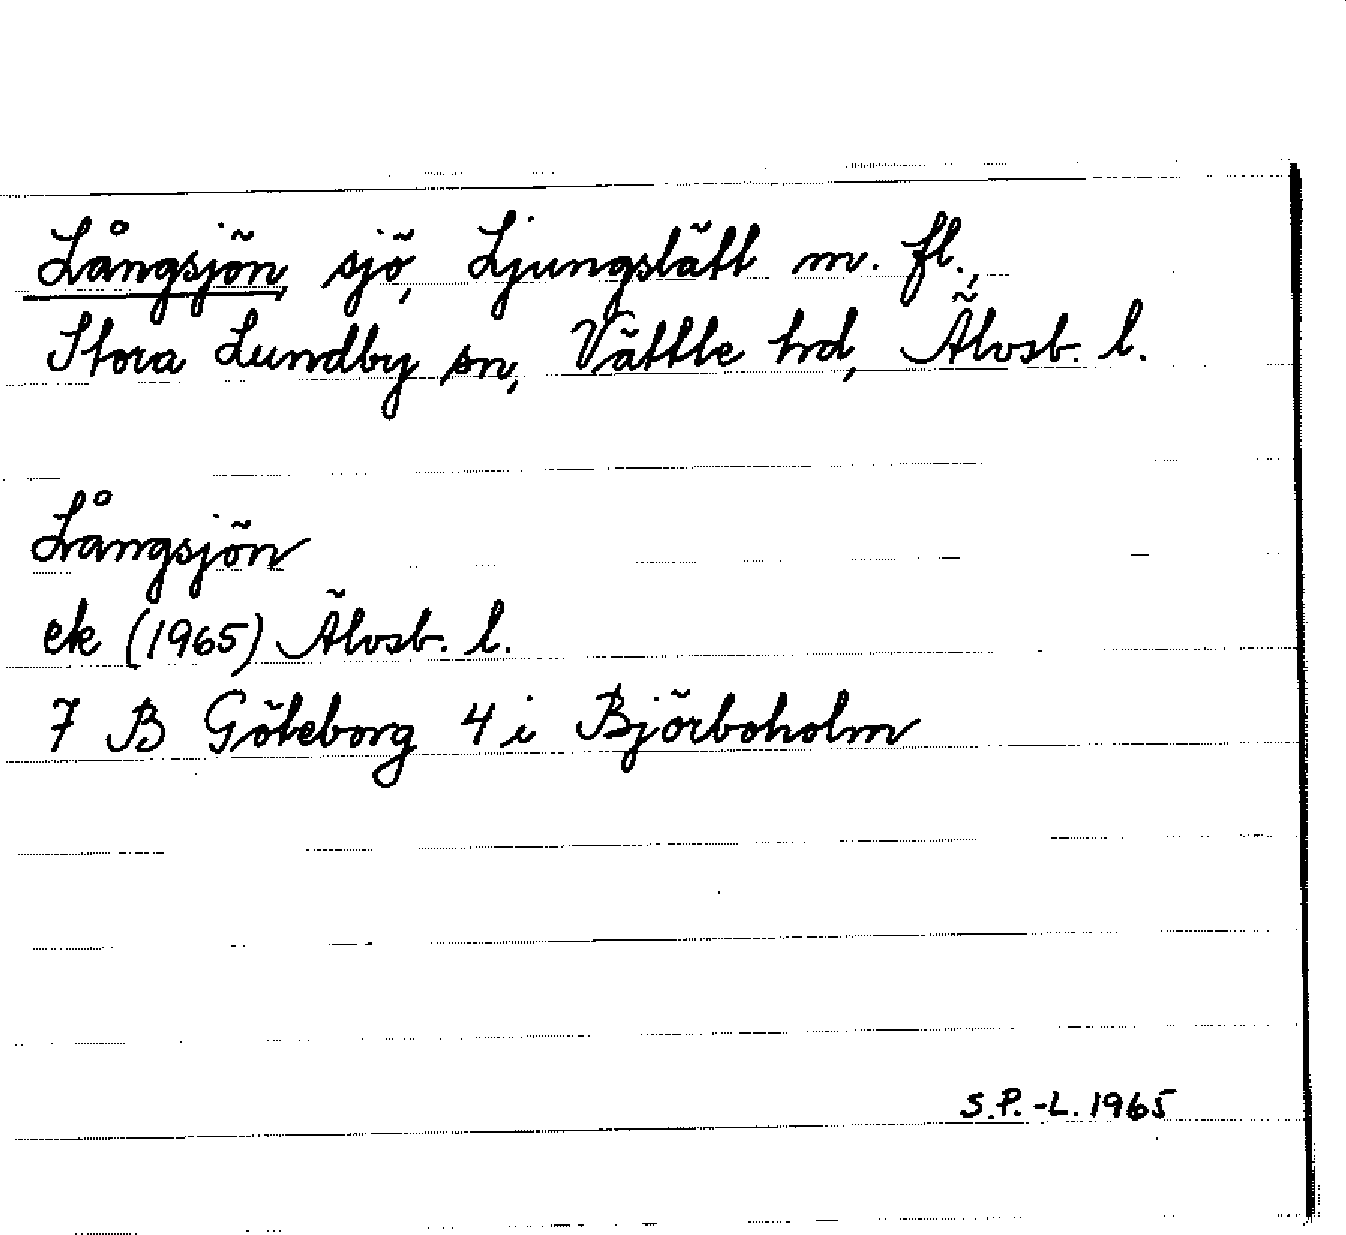 Långsjön sjö, Ljungslätt m. fl.,
Stora Lundby sn, Vättle hd, Älvsb. l.
Långsjön
ek (1965) Älvsb. l.
7 B Göteborg 4 i Björboholm
S.P.-L. 1965